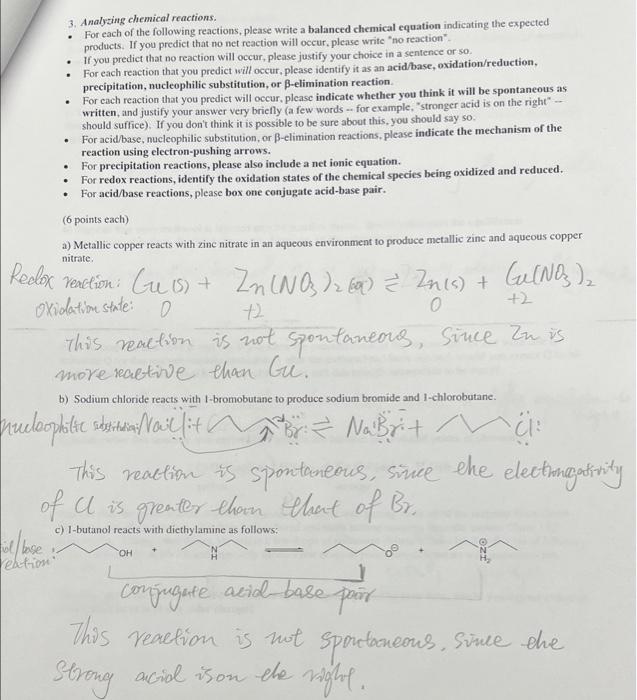 3. Analyzing chemical reactions.
• For each of the following reactions, please write a balanced chemical equation indicating the expected
products. If you predict that no net reaction will occur, please write "no reaction".
• If you predict that no reaction will occur, please justify your choice in a sentence or so.
• For each reaction that you predict will occur, please identify it as an acid/base, oxidation/reduction,
precipitation, nucleophilic substitution, or β-elimination reaction.
• For each reaction that you predict will occur, please indicate whether you think it will be spontaneous as
written, and justify your answer very briefly (a few words -- for example, "stronger acid is on the right" --
should suffice). If you don't think it is possible to be sure about this, you should say so.
• For acid/base, nucleophilic substitution, or β-elimination reactions, please indicate the mechanism of the
reaction using electron-pushing arrows.
• For precipitation reactions, please also include a net ionic equation.
• For redox reactions, identify the oxidation states of the chemical species being oxidized and reduced.
• For acid/base reactions, please box one conjugate acid-base pair.
(6 points each)
a) Metallic copper reacts with zinc nitrate in an aqueous environment to produce metallic zinc and aqueous copper
nitrate.
Redox reaction: Cu(s) + Zn(NO3)2(aq) ⇌ Zn(s) + Cu(NO3)2
Oxidation state: 0 +2 0 +2
This reaction is not spontaneous, since Zn is
more reactive than Cu.
b) Sodium chloride reacts with 1-bromobutane to produce sodium bromide and 1-chlorobutane.
nucleophilic substitution: NaCl: + Br: ⇌ NaBr: + Cl:
This reaction is spontaneous, since the electronegativity
of Cl is greater than that of Br.
c) 1-butanol reacts with diethylamine as follows:
/base OH + N H O⊖ + ⊕ N H2
reaction:
conjugate acid-base pair
This reaction is not spontaneous, since the
strong acid is on the right.